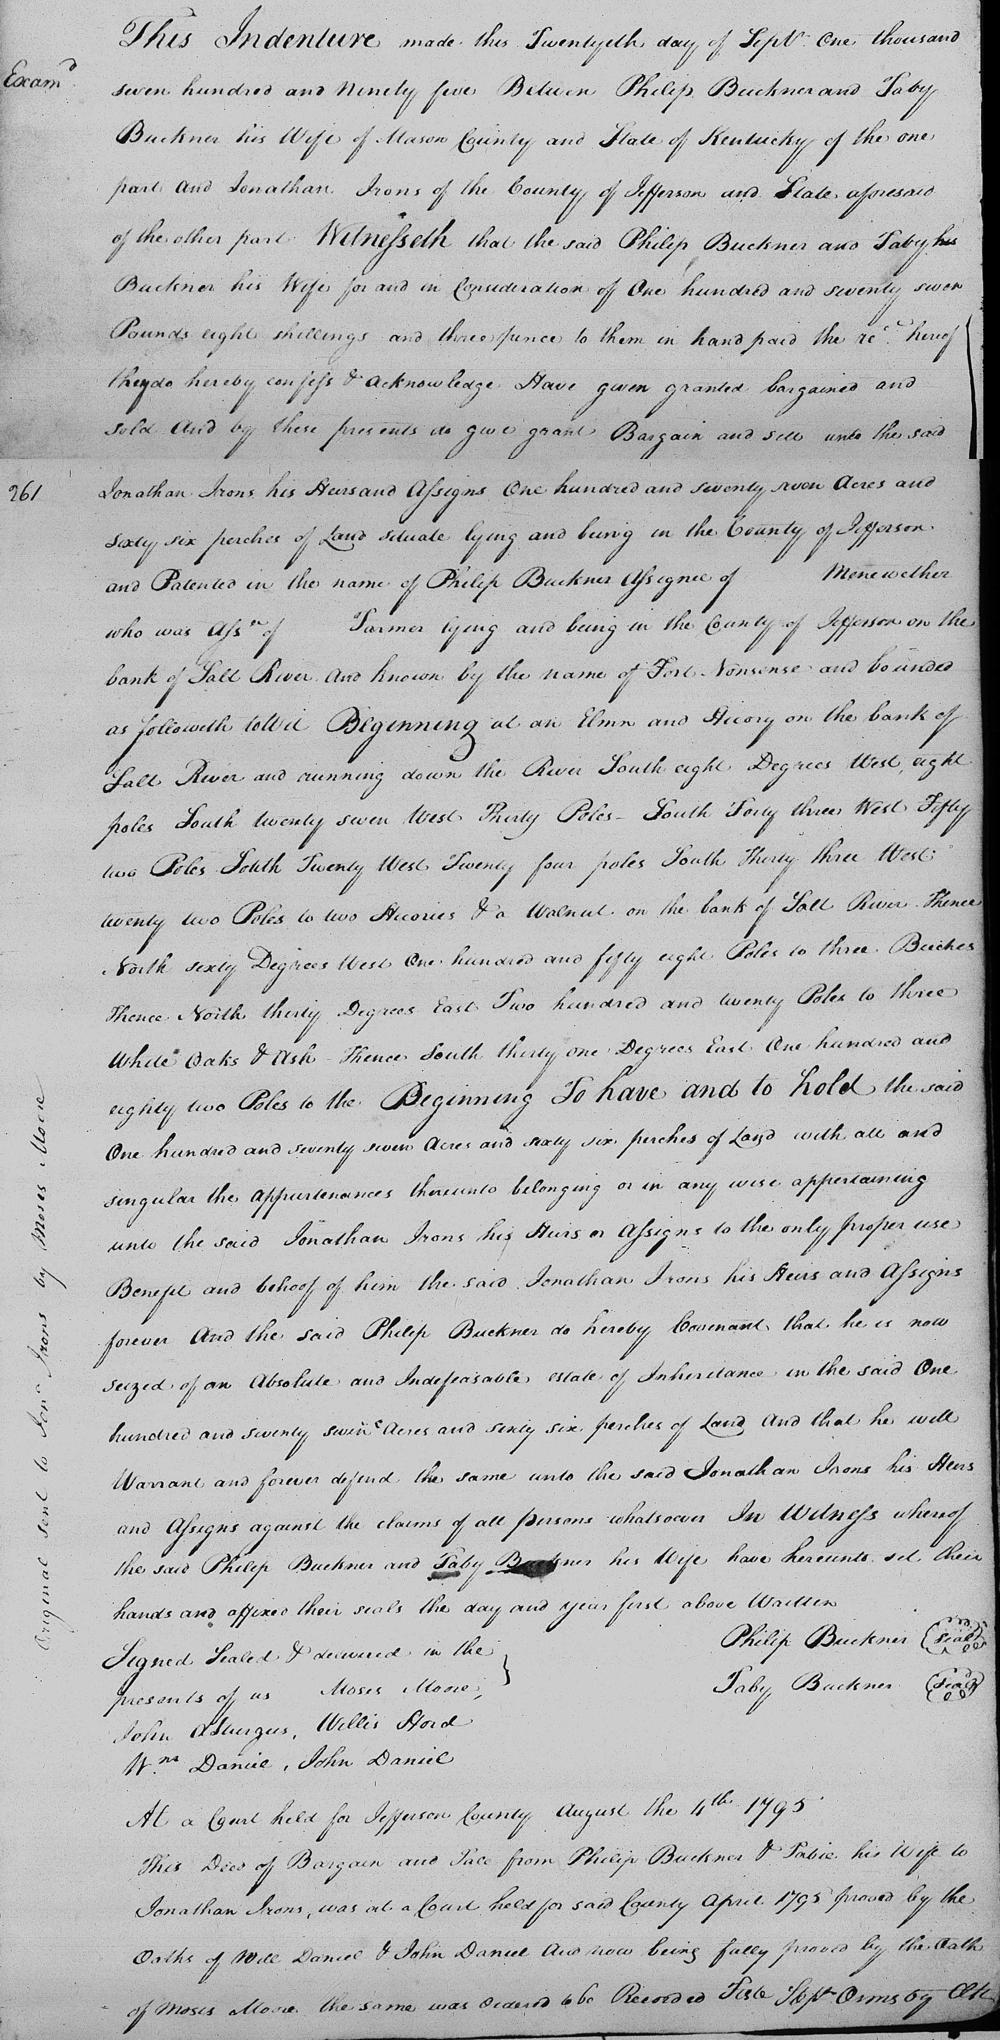 This Indenture made this Twentyeth day of Sept. One thousand
Examd. seven hundred and Ninety five Between Philip Buckner and Taby
Buckner his Wife of Mason County and State of Kentucky of the one
part and Jonathan Irons of the County of Jefferson and State afforesaid
of the other part Witnesseth that the said Philip Buckner and Taby his
Buckner his Wife for and in Consideration of One hundred and seventy seven
Pounds eight shillings and three pence to them in hand paid the rec. hereof
they do hereby confess & acknowledge Have given granted bargained and
sold And by these presents do give grant Bargain and sell unto the said
261 Jonathan Irons his Heirs and Assigns One hundred and seventy seven Acres and
sixty six perches of Land situate lying and being in the County of Jefferson
and Patented in the name of Philip Buckner Assignee of Meriwether
who was Assne. of Farmer lying and being in the County of Jefferson on the
bank of Salt River And known by the name of Fort Nonsense and bounded
as followeth toWit Beginning at an Elmn and Hicory on the bank of
Salt River and running down the River South eight Degrees West, eight
poles South twenty seven West Thirty Poles - South Forty three West Fifty
two Poles South Twenty West Twenty four poles South Thirty three West
twenty two Poles to two Hicories & a Walnut on the bank of Salt River Thence
North sixty Degrees West One hundred and fifty eight Poles to three Beiches
Thence North thirty Degrees East Two hundred and twenty Poles to three
White Oaks & Ash - Thence South thirty one Degrees East One hundred and
eighty two Poles to the Beginning To have and to hold the said
One hundred and seventy seven Acres and sixty six perches of Land with all and
singular the Appurtenances thereunto belonging or in any wise appertaining
unto the said Jonathan Irons his Heirs or Assigns to the only proper use
Benefit and behoof of him the said Jonathan Irons his Heirs and Assigns
forever And the said Philip Buckner do hereby Covenant that he is now
seized of an Absolute and Indefeasable estate of Inheritance in the said One
hundred and seventy seven Acres and sixty six perches of Land And that he will
Warrant and forever defend the same unto the said Jonathan Irons his Heirs
and Assigns against the claims of all persons whatsoever In Witness whereof
the said Philip Buckner and Taby Buckner his Wife have hereunto set their
hands and affixed their seals the day and year first above Written
Signed Sealed & delivered in the Philip Buckner (Seal)
presents of us Moses Moore, Taby Buckner (Seal)
John A Sturgus, Willis Hord
Wm. Daniel, John Daniel
At a Court held for Jefferson County August the 4th 1795
This Deed of Bargain and Sale from Philip Buckner & Tabie his Wife to
Jonathan Irons, was at a Court held for said County April 1795 proved by the
Oaths of Will Daniel & John Daniel And now being fully proved by the Oath
of Moses Moore the same was ordered to be Recorded Teste Stepn. Ormsby Clk
Original sent to Jona. Irons by Moses Moore